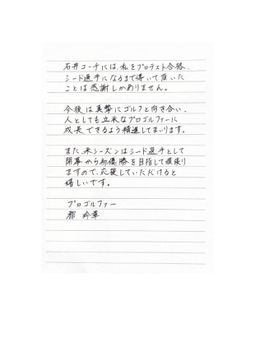 石井コーチには、私をプロテスト合格、
シード選手になるまで導いて頂いた
ことは感謝しかありません。
今後は真摯にゴルフと向き合い、
人としても立派なプロゴルファーに
成長できるよう精進してまいります。
また、来シーズンはシード選手として
開幕から初優勝を目指して頑張り
ますので、応援していただけると
嬉しいです。
プロゴルファー
都 玲華